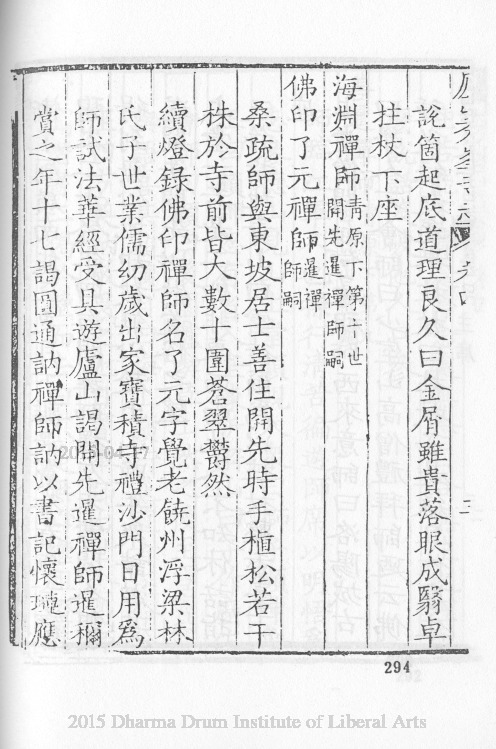 說箇起底道理良久曰金屑雖貴落眼成翳卓
拄杖下座
海淵禪師青原下第十世開先暹禪師嗣
佛印了元禪師暹禪師嗣
桑疏師與東坡居士善住開先時手植松若干
株於寺前皆大數十圍蒼翠鬱然
續燈錄佛印禪師名了元字覺老饒州浮梁林
氏子世業儒幼歲出家寶積寺禮沙門日用為
師試法華經受具遊廬山謁開先暹禪師暹稱
賞之年十七謁圓通訥禪師訥以書記懷璉應
294
2015 Dharma Drum Institute of Liberal Arts